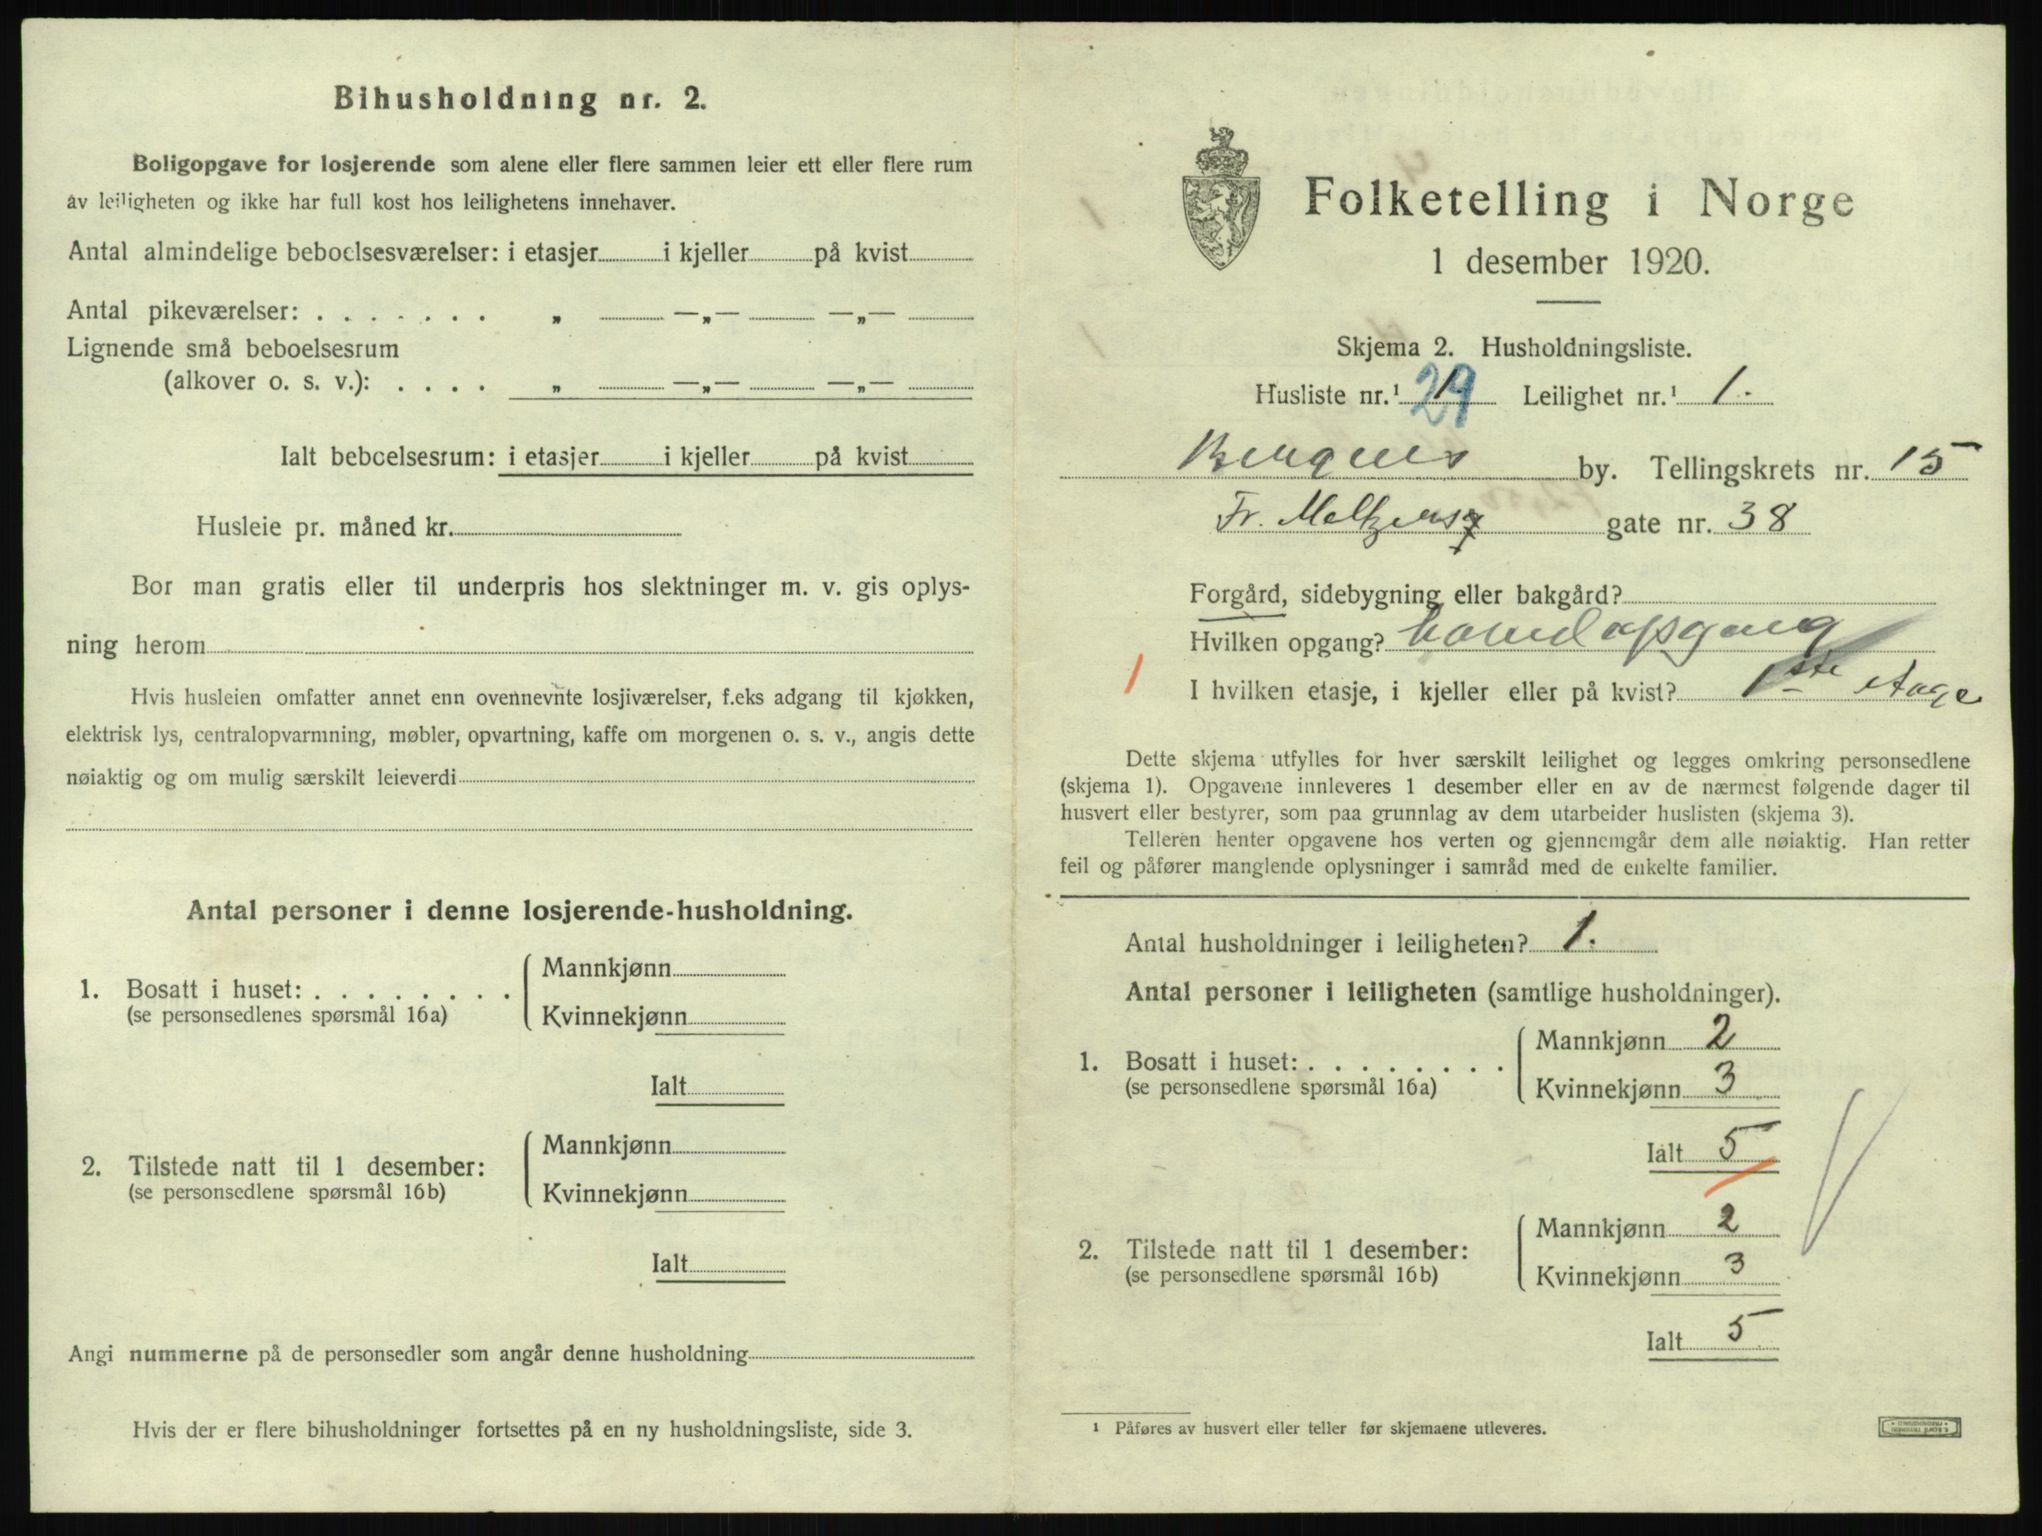 Bihusholdning nr. 2.
Boligopgave for losjerende som alene eller flere sammen leier ett eller flere rum
av leiligheten og ikke har full kost hos leilighetens innehaver.
Antal almindelige beboelsesværelser: i etasjer i kjeller på kvist
Antal pikeværelser: . . . . . . . „ —„— —„—
Lignende små beboelsesrum
(alkover o. s. v.): . . . . „ —„— —„—
Ialt beboelsesrum: i etasjer i kjeller på kvist
Husleie pr. måned kr.
Bor man gratis eller til underpris hos slektninger m. v. gis oplys-
ning herom
Hvis husleien omfatter annet enn ovennevnte losjiværelser, f.eks adgang til kjøkken,
elektrisk lys, centralopvarmning, møbler, opvartning, kaffe om morgenen o. s. v., angis dette
nøiaktig og om mulig særskilt leieverdi
Antal personer i denne losjerende-husholdning.
1. Bosatt i huset: . . . . . . . .
(se personsedlenes spørsmål 16a)
Mannkjønn
Kvinnekjønn
Ialt
2. Tilstede natt til 1 desember:
(se personsedlene spørsmål 16b)
Mannkjønn
Kvinnekjønn
Ialt
Angi nummerne på de personsedler som angår denne husholdning
Hvis der er flere bihusholdninger fortsettes på en ny husholdningsliste, side 3.
Folketelling i Norge
1 desember 1920.
Skjema 2. Husholdningsliste.
Husliste nr.¹ 29 Leilighet nr.¹ 1.
Bergens by. Tellingskrets nr. 15
Fr. Meltzers gate nr. 38
Forgård, sidebygning eller bakgård?
Hvilken opgang? hovedopgang
1 I hvilken etasje, i kjeller eller på kvist? 1ste etage
Dette skjema utfylles for hver særskilt leilighet og legges omkring personsedlene
(skjema 1). Opgavene innleveres 1 desember eller en av de nærmest følgende dager til
husvert eller bestyrer, som paa grunnlag av dem utarbeider huslisten (skjema 3).
Telleren henter opgavene hos verten og gjennemgår dem alle nøiaktig. Han retter
feil og påfører manglende oplysninger i samråd med de enkelte familier.
Antal husholdninger i leiligheten? 1.
Antal personer i leiligheten (samtlige husholdninger).
1. Bosatt i huset: . . . . . . . .
(se personsedlene spørsmål 16a)
Mannkjønn 2
Kvinnekjønn 3
Ialt 5
2. Tilstede natt til 1 desember:
(se personsedlene spørsmål 16b)
Mannkjønn 2
Kvinnekjønn 3
Ialt 5
¹ Påføres av husvert eller teller før skjemaene utleveres.